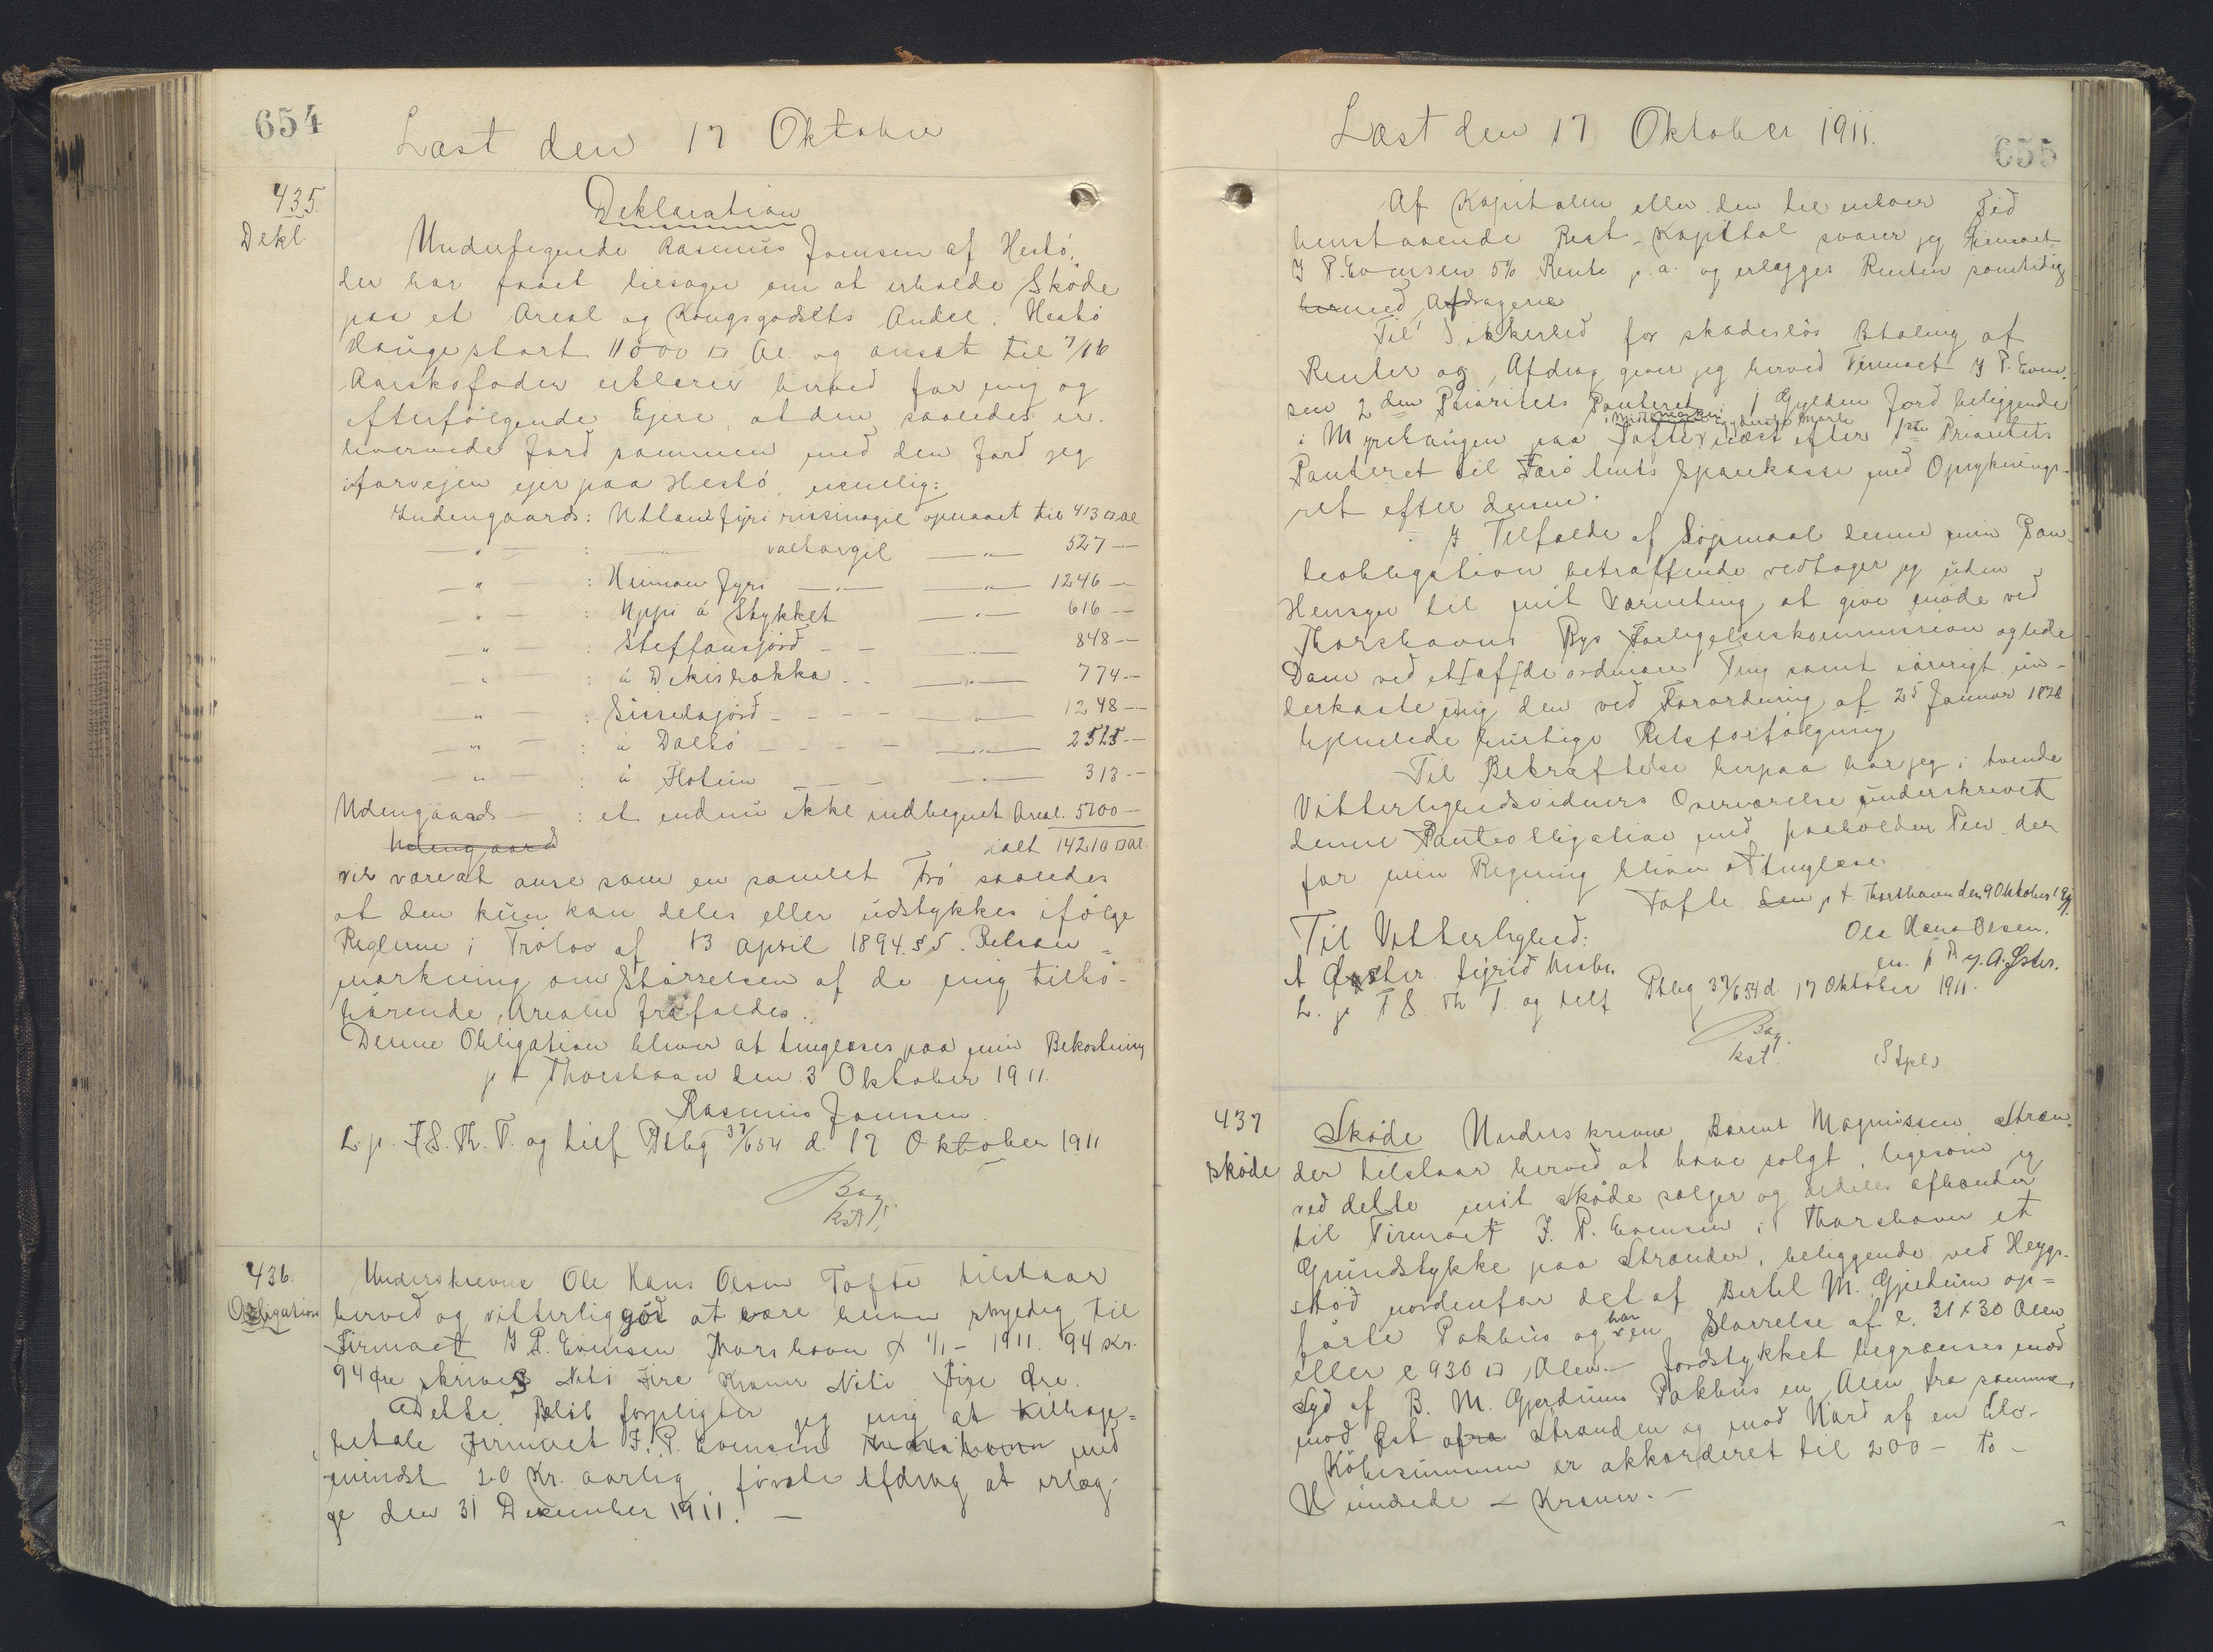 654
Læst den 17 Oktober
435.
Dekl
Deklaration
Undertegnede Rasmus Joensen af Hestö,
der har faaet tilsagn om at erholde Sköde
paa et Areal og Kongsgodsets Andel. Hestö
Hauge stort 11000 □ Al og ansat til 7/16
Aarskofoder erklærer herved for mig og
efterfölgende Ejere, at den saaledes er
hvervede Jord sammen med den Jord jeg
iforvejen ejer paa Hestö, nemlig:
Indengaards: Uttanfyri rissinagil opmaalt til 413 □ Al
— " — : — " — valtargil — " — 527 —
— " — : Heiman fyri — " — — " — 1246 —
— " — : Uppi á Stykket — " — 616 —
— " — : Steffansjörd - - — " — 848 —
— " — : á Dekisbakka - - — " — 774 —
— " — : Sisselsjörd - - - - — " — 1248 —
— " — : á Dalbö - - - - — " — 2525 —
— " — : á Flotum - - — " — 313 —
Udengaards — : et endnu ikke indhegnet Areal. 5700 —
Udengaard ialt 14210 □ Al.
vil være at anse som en samlet Trö saaledes
at den kun kan deles eller udstykkes ifölge
Reglerne i Trölov af 13 april 1894. § 5. Retsan=
mærkning om Störrelsen af de mig tilhö-
hörende Arealer frafaldes.
Denne Obligation bliver at tinglæses paa min Bekostning
p t Thorshavn den 3 Oktober 1911.
Rasmus Joensen.
L. p. F S. Th. T. og tilf Ptbg 37/654 d. 17 Oktober 1911
Bay.
kst.
436.
Obligation
Underskrevne Ole Hans Olsen Tofte tilstaar
herved og vitterliggör at være bleven skyldig til
Firmaet J P. Evensen Thorshavn d 1/1 - 1911. 94 Kr.
94 Øre skriver Niti Fire Kroner Niti Fire Øre.
Dette Belöb forpligter jeg mig at tilbage=
betale Firmaet J. P. Evensen Thorshavn med
mindst 20 Kr. aarlig förste Afdrag at erlæg-
ge den 31 December 1911. —
Læst den 17 Oktober 1911.
655
Af Kapitalen eller den til enhver Tid
henstaaende Rest-Kapital svarer jeg Firmaet
J P. Evensen 5% Rente p. a. og erlægges Renten samtidig
hermed Afdragene
Til Sikkerhed for skadeslös Btaling af
Renter og Afdrag giver jeg herved Firmaet J P. Even-
sen 2den Prioritets Panteret i 1 Gylden Jord beliggende
i Myrehaugen paa Tofte næst efter 1ste Prioritets
Panteret til Færö Amts Sparekasse med Opryknings-
ret efter denne.
I Tilfælde af Sögsmaal denne min Pan-
teobligation betræffende vedtager jeg uden
Hensyn til mit Værneting at give möde ved
Thorshavns Bys Forligelseskommission og lide
Dom ved et af de ordinære Ting samt iövrigt un-
derkaste mig den ved Forordning af 25 Januar 1828
hjemlede hurtige Retsforfölgning
Til Bekræftelse herpaa har jeg i tvende
Vitterlighedsvidners Overværelse underskrevet
denne Panteobligation med paaholden Pen der
for min Regning bliver at tinglæse
Tofte den p t. Thorshavn den 9 Oktober 1911.
Ole Hans Olsen.
m. f P J. A. Öster.
Til Vitterlighed:
A Øster. Sigrid
L. p F S. Th T. og tilf Ptbg 37/654 d 17 Oktober 1911.
Bay.
kst.
(Stpl)
437
Sköde
Sköde Underskrevne Barent Magnussen Stran-
der tilstaar herved at have solgt, ligesom jeg
ved dette mit Sköde sælger og aldeles afhænder
til Firmaet J. P. Evensen i Thorshavn et
Grundstykke paa Strander, beliggende ved Heygs-
stod nordenfor det af Bertel M. Gjerdum op=
förte Pakhus og har en Störrelse af c. 31 x 30 Alen
eller c 930 □ Alen. — Jordstykket begrænses mod
Syd af B. M. Gjerdums Pakhus en Alen fra samme,
mod Øst afra Stranden og mod Nord af en Elv.
Köbesummen er akkorderet til 200 — to —
Hundrede — Kroner. —